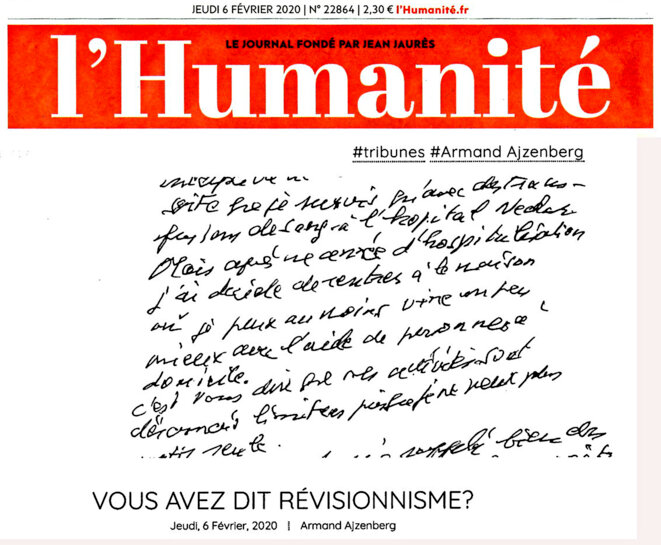 JEUDI 6 FÉVRIER 2020 | N° 22864 | 2,30 € l'Humanité.fr
LE JOURNAL FONDÉ PAR JEAN JAURÈS
l'Humanité
#tribunes #Armand Ajzenberg
que je survis qu'avec des trans-
fusions de sang à l'hopital Necker
Mais après une année d'hospitalisation
j'ai décidé de rentrer à la maison
où je peux au moins vivre un peu
mieux avec l'aide de personnes à
domicile.
c'est vous dire que mes activités sont
désormais limitées je ne peux plus
rappelé bien des
VOUS AVEZ DIT RÉVISIONNISME?
Jeudi, 6 Février, 2020 | Armand Ajzenberg